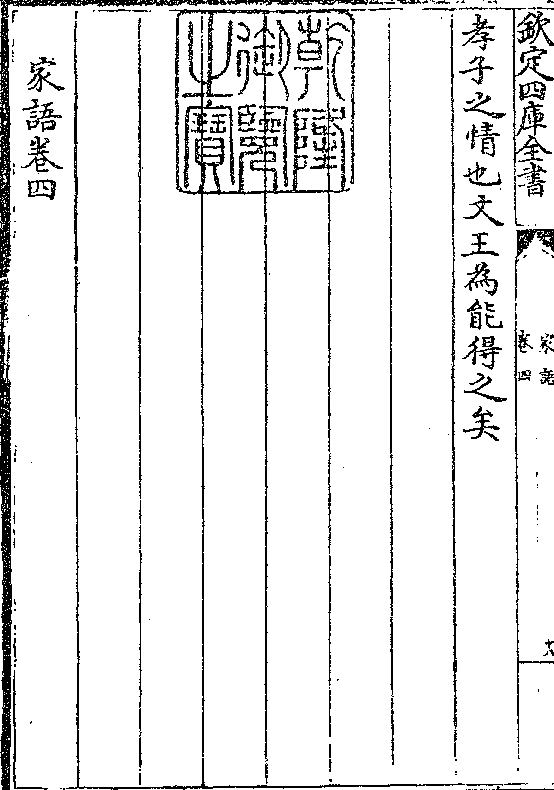 欽定四庫全書
家語
卷四
孝子之情也文王為能得之矣
乾隆
御覽
之寶
家語卷四